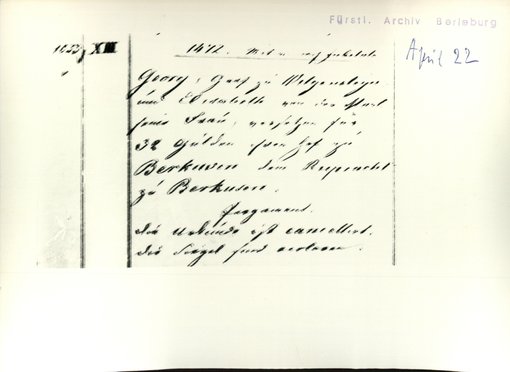 Fürstl. Archiv Berleburg
April 22
XIII
1472. Mitw. nach jubilate
Georg, Graf zu Witgenstein
und Elisabeth von der Mark
seine Frau, versetzen für
32 Gulden ihren Hof zu
Berkusen dem Ruprecht
zu Berkusen.
Pergament.
die Urkunde ist cancellirt.
die Siegel sind verloren.